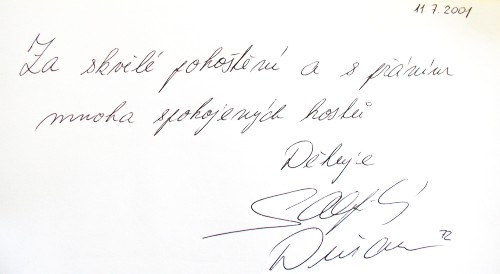 11 7. 2001
Za skvělé pohoštění a s přáním
mnoha spokojených hostů
Děkuje
Dušan